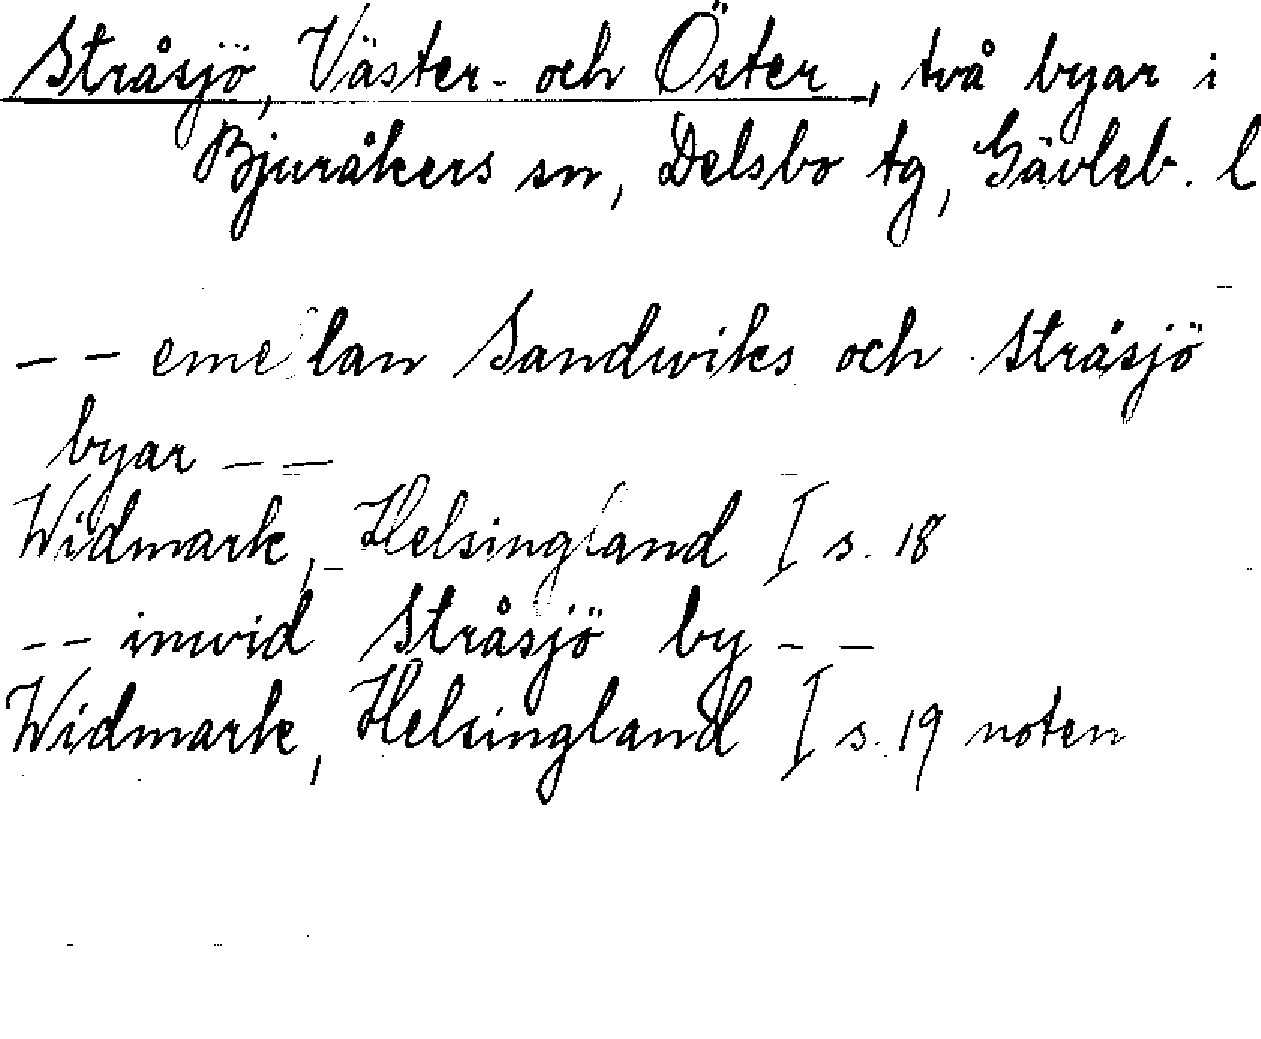 Stråsjö, Väster- och Öster, två byar i
Bjuråkers sn, Delsbo tg, Gävleb. l
- - emellan Sandwiks och Stråsjö
byar - -
Widmark, Helsingland I s. 18
- - inwid Stråsjö by - -
Widmark, Helsingland I s. 19 noten